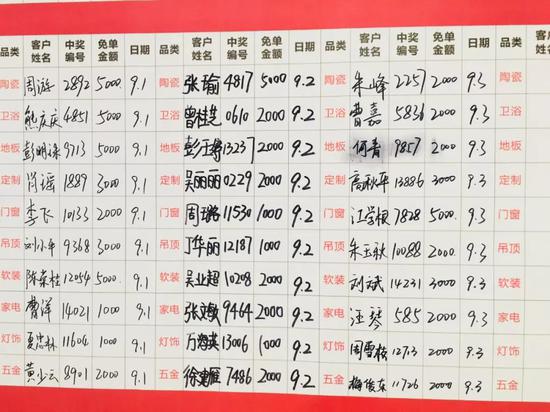 品类 客户姓名 中奖编号 免单金额 日期 品类 客户姓名 中奖编号 免单金额 日期 品类 客户姓名 中奖编号 免单金额 日期
陶瓷 周游 2892 5000 9.1 陶瓷 张瑜 4817 5000 9.2 陶瓷 朱峰 2257 2000 9.3
卫浴 熊庆庆 4851 5000 9.1 卫浴 曾桂兰 0610 2000 9.2 卫浴 曹嘉 5836 2000 9.3
地板 彭明 9713 5000 9.1 地板 彭 13237 2000 9.2 地板 何青 9857 2000 9.3
定制 肖瑶 1889 3000 9.1 定制 吴丽丽 0229 2000 9.2 定制 高秋平 13886 3000 9.3
门窗 李飞 10133 2000 9.1 门窗 周 11530 1000 9.2 门窗 江学根 7828 5000 9.3
吊顶 刘小平 9368 3000 9.1 吊顶 丁华丽 12187 1000 9.2 吊顶 朱玉秋 10088 2000 9.3
软装 陈荣桂 12054 5000 9.1 软装 吴业超 10208 2000 9.2 软装 刘斌 14231 3000 9.3
家电 曹洋 14021 1000 9.1 家电 张 9464 2000 9.2 家电 汪琴 585 2000 9.3
灯饰 夏忠林 11604 1000 9.1 灯饰 万海英 13006 1000 9.2 灯饰 周雪枝 12713 2000 9.3
五金 黄少云 8901 2000 9.1 五金 徐 7486 2000 9.2 五金 梅俊东 11726 2000 9.3